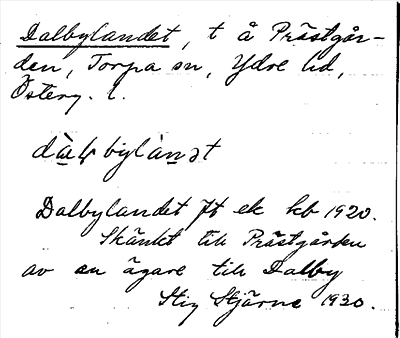 Dalbylandet, t å Prästgår-
den, Torpa sn, Ydre hd,
Österg. l.
dàḷbylàndət
Dalbylandet Jt ek kb 1920.
Skänkt till Prästgården
av en ägare till Dalby
Stig Stjärne 1930.